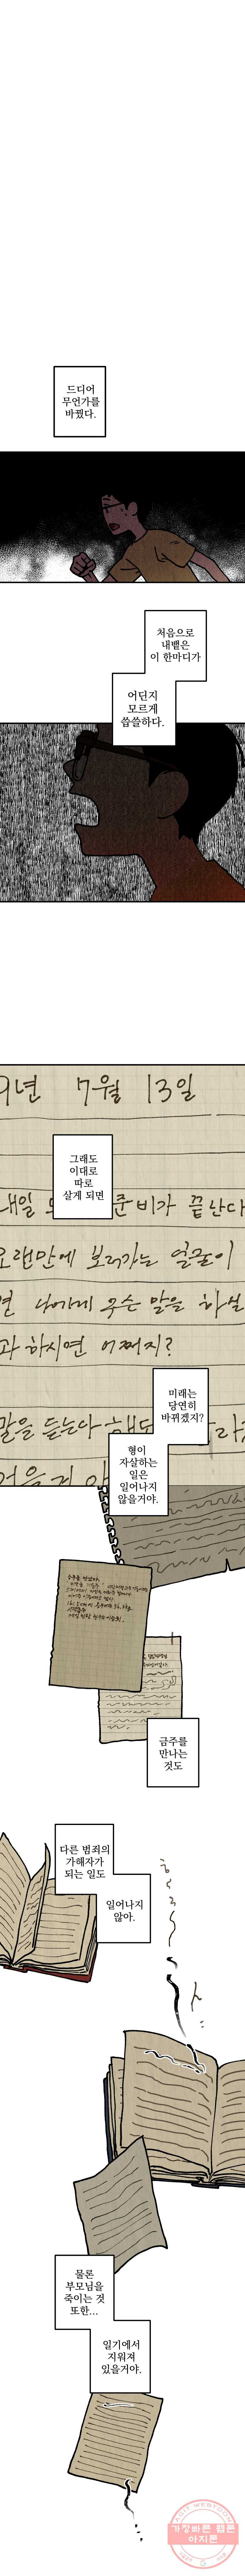 드디어
무언가를
바꿨다.
처음으로
내뱉은
이 한마디가
어딘지
모르게
씁쓸하다.
9년 7월 13일
그래도
이대로
따로
살게 되면
내일 준비가 끝난다
오랜만에 보러가는 얼굴이
면 나에게 무슨 말을 하실
과 하시면 어쩌지?
미래는
당연히
바뀌겠지?
말을 듣는다
형이
자살하는
일은
일어나지
않을거야.
금주를
만나는
것도
다른 범죄의
가해자가
되는 일도
일어나지
않아.
물론
부모님을
죽이는 것
또한...
일기에서
지워져
있을거야.
FAST WEBTOON
가장빠른 웹툰
아지툰